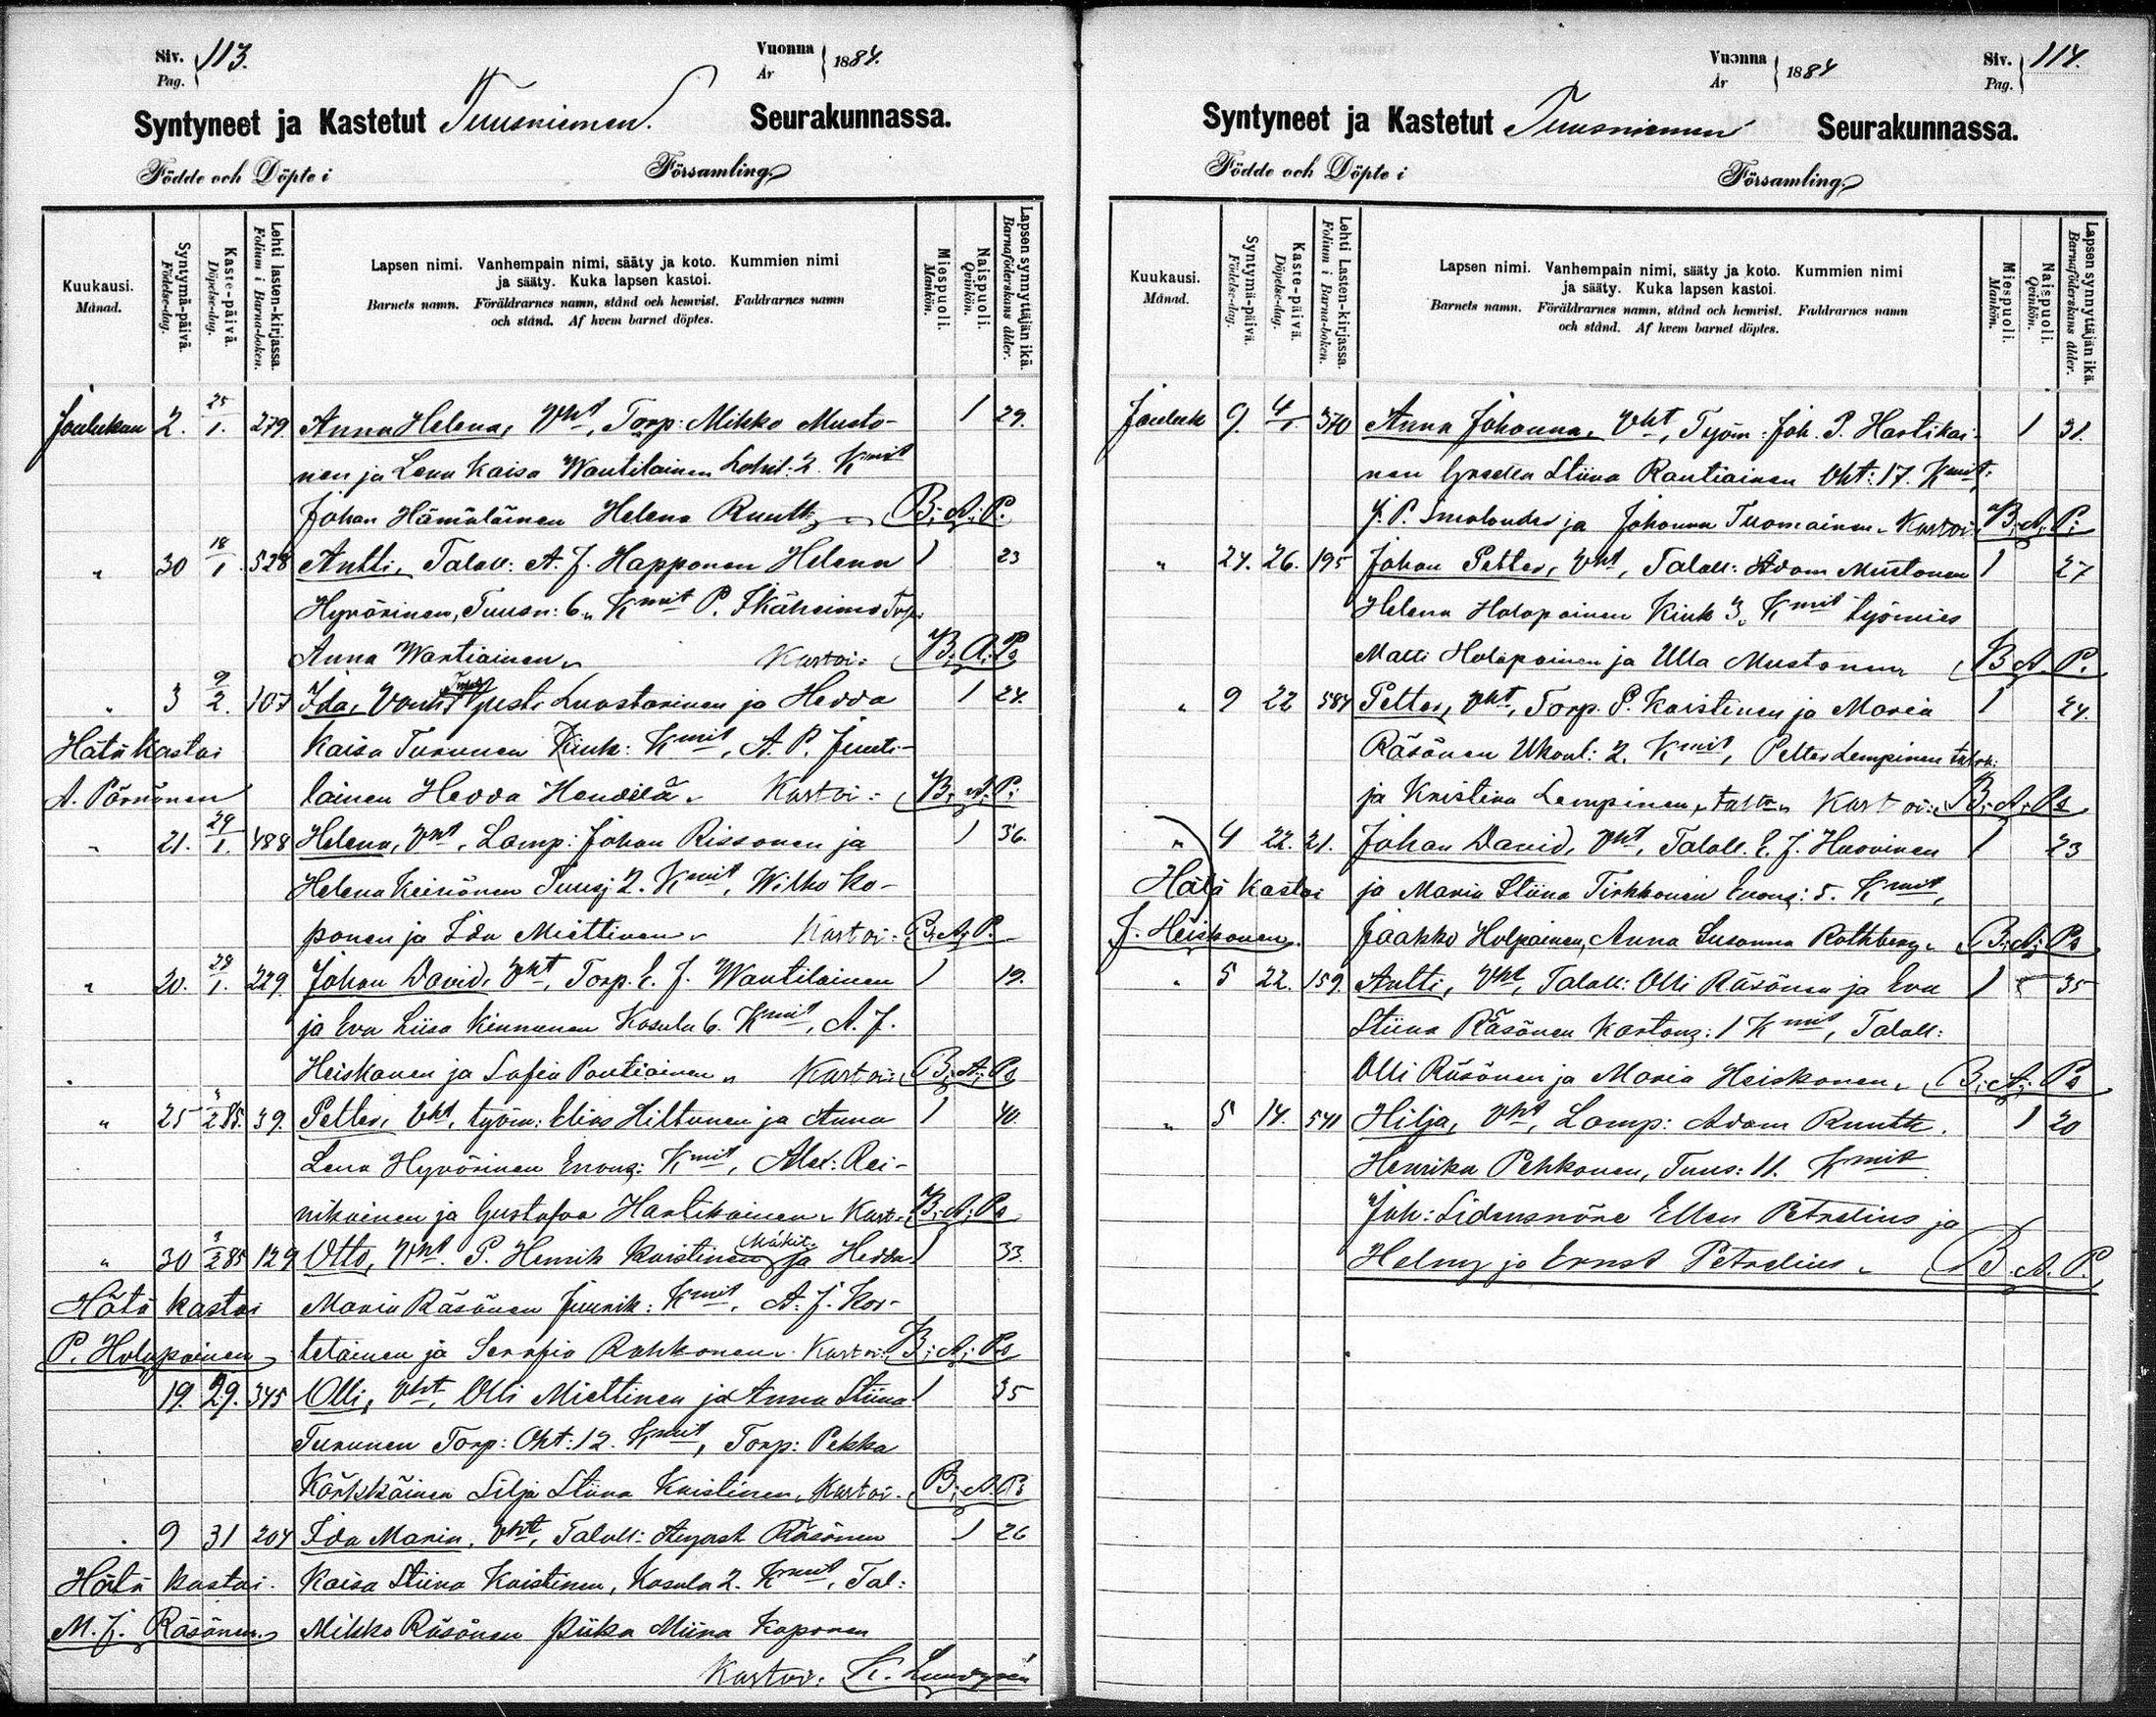 Siv. Pag. 113.
Vuonna År 1884.
Syntyneet ja Kastetut Tuusniemen. Seurakunnassa.
Födde och Döpte i Församling.
Kuukausi. Månad.
Syntymä-päivä. Födelse-dag.
Kaste-päivä. Döpelse-dag.
Lehti lasten-kirjassa. Folium i Barna-boken.
Lapsen nimi. Vanhempain nimi, sääty ja koto. Kummien nimi
ja sääty. Kuka lapsen kastoi.
Barnets namn. Föräldrarnes namn, stånd och hemvist. Faddrarnes namn
och stånd. Af hvem barnet döptes.
Miespuoli. Mankön.
Naispuoli. Qvinkön.
Lapsen synnyttäjän ikä. Barnaföderskans ålder.
Joulukuu 2. 25/1. 279. Anna Helena, Vht, Torp: Mikko Musto- 1 29.
nen ja Lena Kaisa Wantilainen 2. Kmit
Johan Hämäläinen Helena Ruuth B. A. P.
" 30 18/1. 528 Antti, Taloll: A. J. Happonen Helena 1 23
Hyvönen, Tuusn: 6. Kmit P. Torp.
Anna Wartiainen Kastoi: B. A. P.
" 3 9/2. 107 Ida, Luostarinen ja Hedda 1 24.
Hätä Kastoi Kaisa Turunen Kmit, A. P. Junti-
A. Pörnönen lainen Hedda Kastoi: B. A. P.
" 21. 29/1. 488 Helena, Vht, Lamp: Johan Rissonen ja 1 36.
Helena Keinönen Tuusj 2. Kmit, Wilho Ko-
ponen ja Ida Miettinen Kastoi: B. A. P.
" 20. 28/1. 229. Johan David, Vht, Torp. E. J. Wantilainen 1 19.
ja Eva Liisa Kinnunen Kosula 6. Kmit, A. J.
Heiskanen ja Sofia Pontiainen Kastoi: B. A. P.
" 25 285. 39. Petter, Vht, työm: Elias Hiltunen ja Anna 1 40.
Lena Hyvönen Kmit, Alex: Rei-
nikainen ja Gustafva Hartikainen Kast. B. A. P.
" 30 285 129 Otto, Vht. P. Henrik Kaistinen Mäkit. ja Hedda 1 33.
Hätä kastoi Maria Räsänen Juurik: Kmit, A. J. Kor-
P. Holopainen telainen ja Serafia Rahkonen Kastoi: B. A. P.
19. 29. 345 Olli, Vht, Olli Miettinen ja Anna Stiina 1 35
Turunen Torp: Oht: 12. Kmit, Torp: Pekka
Kärkkäinen Silja Stiina Kaistinen, Kastoi. B. A. P.
9 31 204 Ida Maria, Vht, Taloll: August Räsänen 1 26
Hätä kastoi. Kaisa Stiina Kaistinen, Kosula 2. Kmit, Tal:
M. J. Räsänen. Mikko Räsänen piika Miina Koponen
Kastoi:
Vuonna År 1884
Siv. Pag. 114.
Syntyneet ja Kastetut Tuusniemen Seurakunnassa.
Födde och Döpte i Församling.
Kuukausi. Månad.
Syntymä-päivä. Födelse-dag.
Kaste-päivä. Döpelse-dag.
Lehti Lasten-kirjassa. Folium i Barna-boken.
Lapsen nimi. Vanhempain nimi, sääty ja koto. Kummien nimi
ja sääty. Kuka lapsen kastoi.
Barnets namn. Föräldrarnes namn, stånd och hemvist. Faddrarnes namn
och stånd. Af hvem barnet döptes.
Miespuoli. Mankön.
Naispuoli. Qvinkön.
Lapsen synnyttäjän ikä. Barnaföderskans ålder.
Jouluk 9. 4/1 370 Anna Johanna, Vht, Työm: Joh. P. Hartikai- 1 31.
nen Gredlu Stiina Rautiainen Oht: 17. Kmit:
J. P. Smolander ja Johanna Tuomainen Kastoi: B. A. P.
" 24. 26. 195 Johan Petter, Vht, Taloll: Adam Mustonen 1 27
Helena Holopainen Kiuk 3. Kmit työmies
Matti Holopainen ja Ulla Mustonen B A P.
" 9 22 584 Petter, Vht, Torp. P. Kaistinen ja Maria 1 24.
Räsänen Ukonl: 2. Kmit, Petter Lempinen
ja Kristina Lempinen, Kastoi: B. A. P.
" 4 22. 21. Johan David, Vht, Taloll. E. J. Huovinen 1 23
Hätä Kastoi ja Maria Stiina Tirkkonen 5. Kmit,
J. Heiskanen. Jaakko Holpainen, Anna Susanna Rothberg. B. A. P.
" 5 22. 159. Antti, Vht, Taloll: Olli Räsänen ja Eva 1 35
Stiina Räsänen 1 Kmit, Taloll:
Olli Räsänen ja Maria Heiskanen, B. A. P.
" 5 14. 541 Hilja, Vht, Lamp: Adam Ruuth. 1 20
Henrika Pehkonen, Tuus: 11. Kmit
Joh: Lidensnöre Ellen Petrelius ja
Helmy ja Ernst Petrelius. B. A. P.